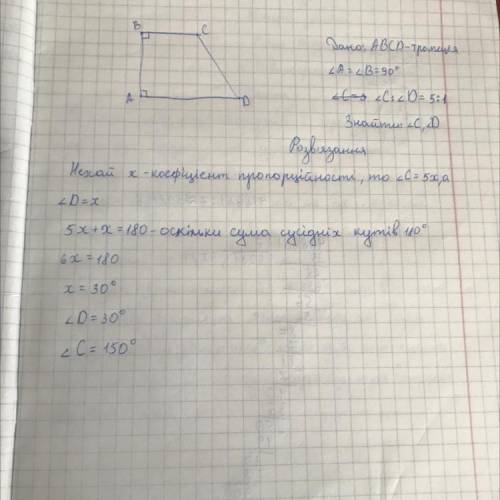 B C
Дано: ABCD-трапеція
∠A=∠B=90°
∠C:∠D=5:1
A D
Знайти: ∠C,∠D
Розв'язання
Нехай x-коефіцієнт пропорційность, то ∠C=5x,а
∠D=x
5x+x=180-оскільки сума сусідніх кутів 180°
6x=180
x=30°
∠D=30°
∠C=150°